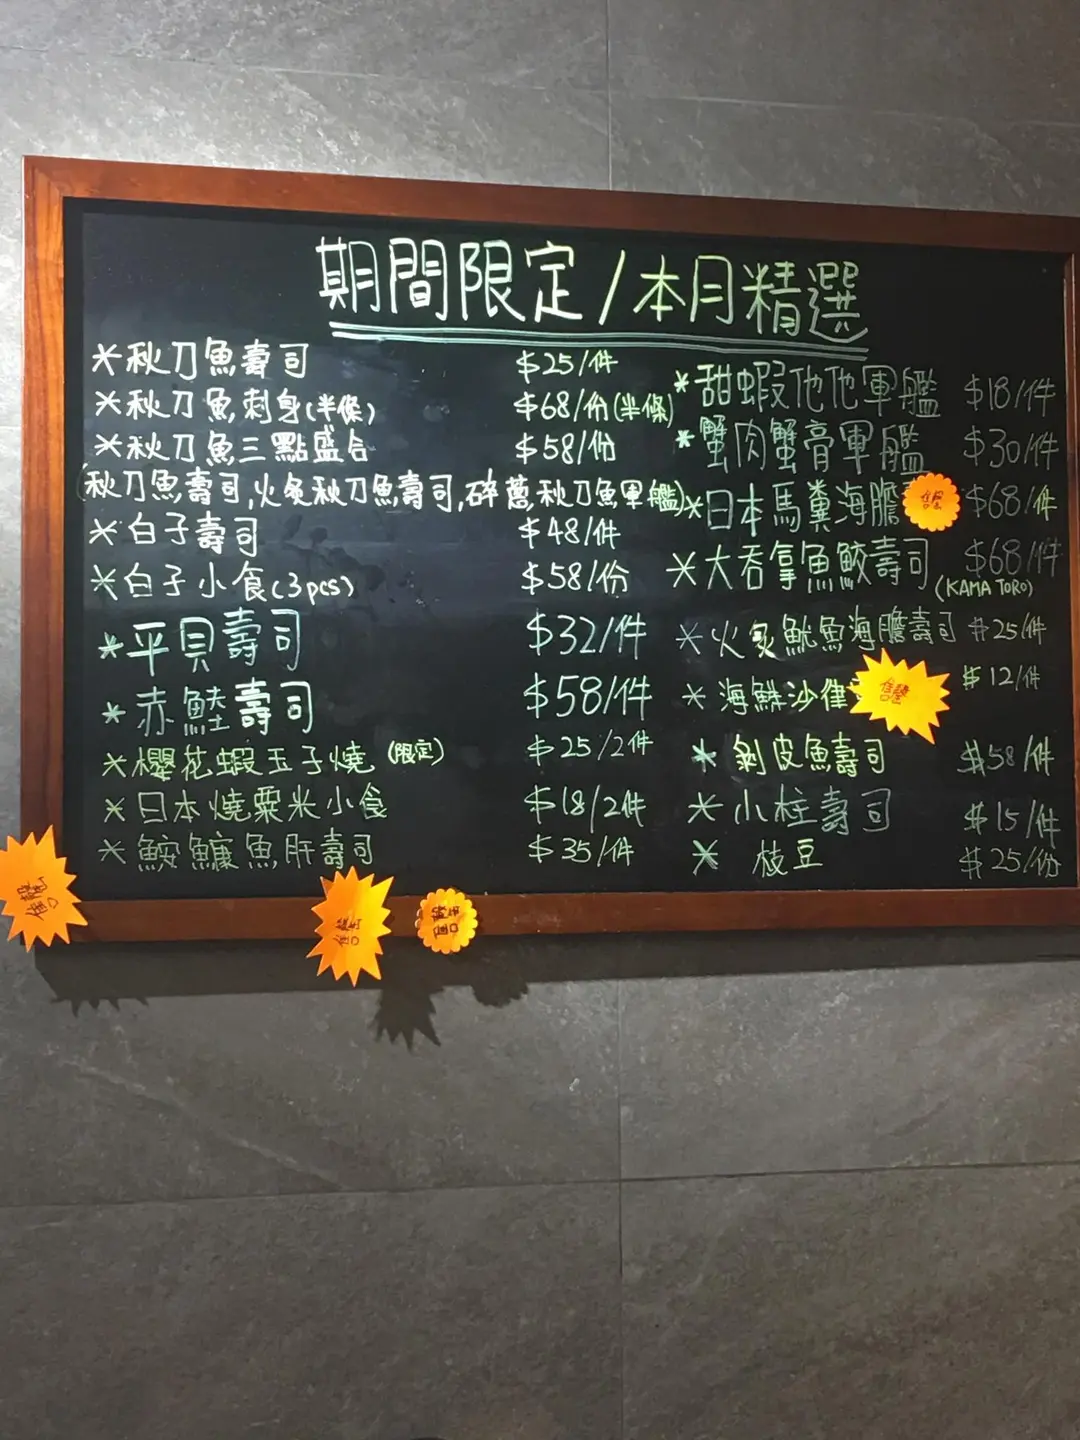 期間限定/本月精選
*秋刀魚壽司 $25/件
*秋刀魚刺身(半條) $68/份(半條)
*秋刀魚三點盛合 $58/份
(秋刀魚壽司,火炙秋刀魚壽司,碎蔥秋刀魚軍艦)
*白子壽司 $48/件
*白子小食(3pcs) $58/份
*平貝壽司 $32/件
*赤鯥壽司 $58/件
*櫻花蝦玉子燒(限定) $25/2件
*日本燒粟米小食 $18/2件
*鮟鱇魚肝壽司 $35/件
*甜蝦他他軍艦 $18/件
*蟹肉蟹膏軍艦 $30/件
*日本馬糞海膽 $68/件
*大吞拿魚鮫壽司 $68/件
(KAMA TORO)
*火炙魷魚海膽壽司 $25/件
*海鮮沙律 $12/件
*剝皮魚壽司 $58/件
*小柱壽司 $15/件
*枝豆 $25/份
售罄
售罄
售罄
售罄
售罄